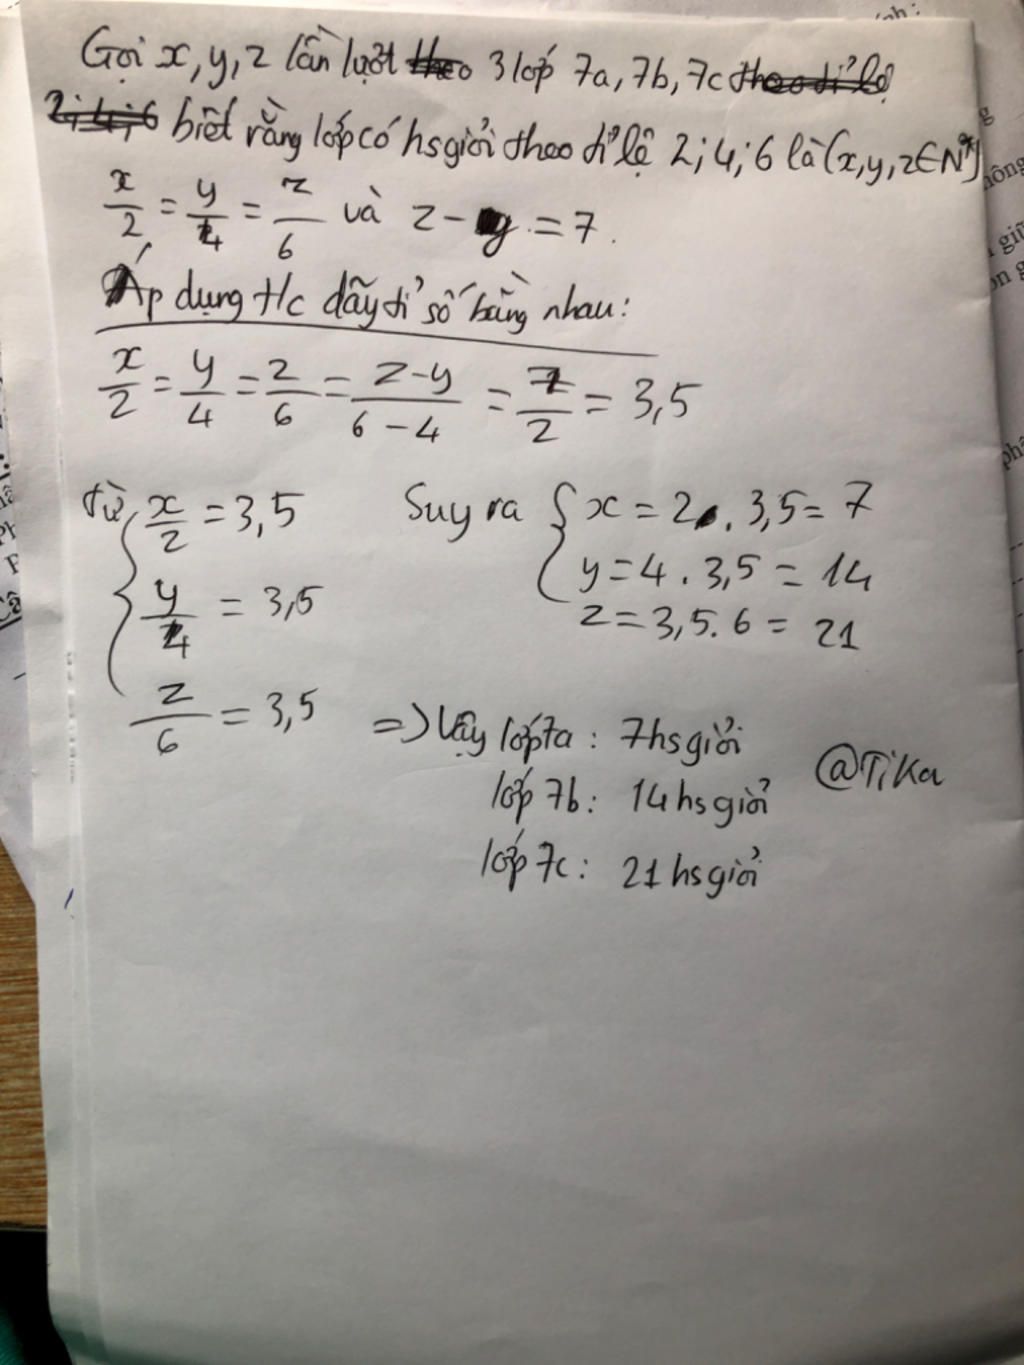 Gọi x, y, z lần lượt theo 3 lớp 7a, 7b, 7c theo tỉ lệ
2; 4; 6 biết rằng lớp có hs giỏi theo tỉ lệ 2; 4; 6 là (x, y, z ∈ N*)
x/2 = y/4 = z/6 và z - y = 7.
Áp dụng t/c dãy tỉ số bằng nhau:
x/2 = y/4 = z/6 = z-y/6-4 = 7/2 = 3,5
từ x/2 = 3,5 Suy ra { x = 2. 3,5 = 7
y/4 = 3,5 y = 4. 3,5 = 14
z/6 = 3,5 z = 3,5. 6 = 21
=> Vậy lớp 7a: 7 hs giỏi
lớp 7b: 14 hs giỏi
@TiKa
lớp 7c: 21 hs giỏi